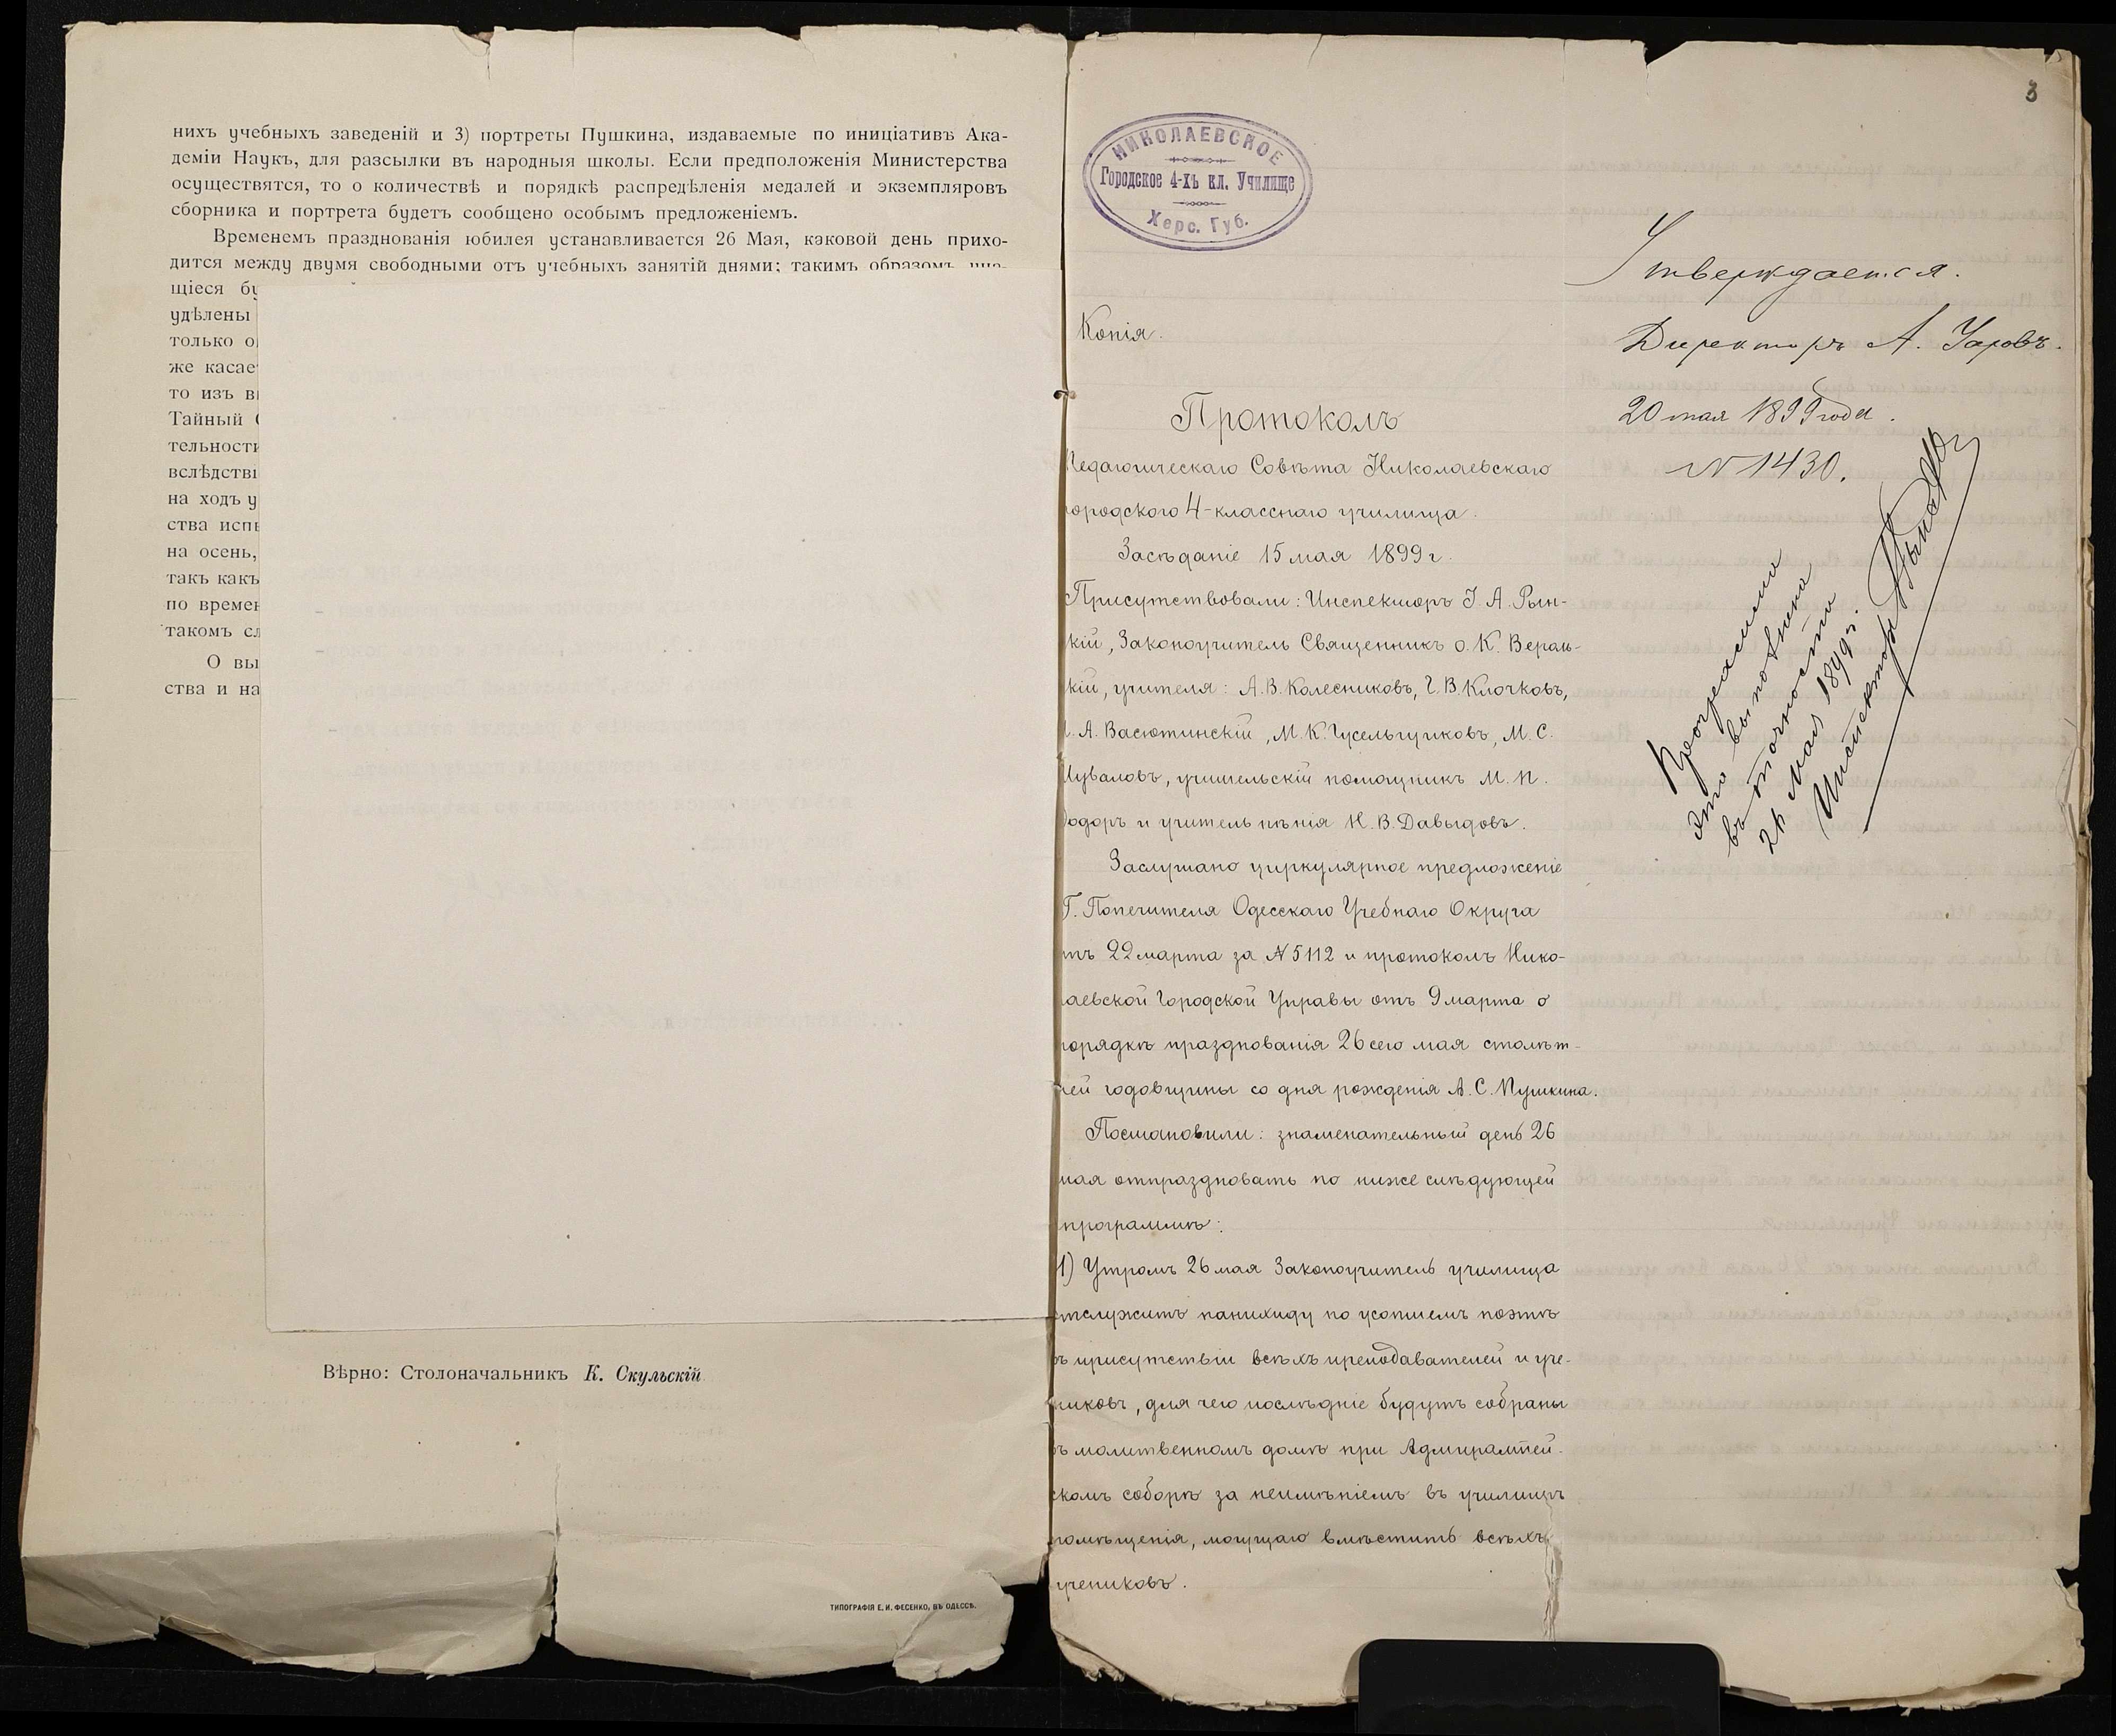 нихъ учебныхъ заведеній и 3) портреты Пушкина, издаваемые по иниціативѣ Ака-
деміи Наукъ, для разсылки въ народныя школы. Если предположенія Министерства
осуществятся, то о количествѣ и порядкѣ распредѣленія медалей и экземпляровъ
сборника и портрета будетъ сообщено особымъ предложеніемъ.
Временемъ празднованія юбилея устанавливается 26 Мая, каковой день прихо-
дится между двумя свободными отъ учебныхъ занятій днями; такимъ образомъ
щіеся
удѣлены
только
же касае
то изъ
Тайный
тельности
вслѣдстві
на ходъ у
ства исп
на осень,
такъ какъ
по времен
такомъ сл
О вы
ства и на
Вѣрно: Столоначальникъ К. Скульскій
ТИПОГРАФІЯ Е. И. ФЕСЕНКО, ВЪ ОДЕССѢ.
8
НИКОЛАЕВСКОЕ
Городское 4-хъ кл. Училище
Херс. Губ.
Утверждается.
Директоръ А. Уаровъ.
20 мая 1899 года.
N 1430.
Программа
эта выполнена
въ точности
26 мая 1899 г.
Инспекторъ
Копія.
Протоколъ
Педагогическаго Совѣта Николаевскаго
городского 4-класснаго училища.
Засѣданіе 15 мая 1899 г.
Присутствовали: Инспекторъ І. А. Рын-
кій, Законоучитель Священникъ о. К. Верль-
кій, учителя: А. В. Колесниковъ, Г. В. Клочковъ,
А. Васютинскій, М. К. Гусельщиковъ, М. С.
Шуваловъ, учительскій помощникъ М. П.
одоръ и учитель пѣнія Н. В. Давыдовъ.
Заслушано циркулярное предложеніе
Г. Попечителя Одесскаго Учебнаго Округа
отъ 22 марта за N 5112 и протоколъ Нико-
лаевской Городской Управы отъ 9 марта о
порядкѣ празднованія 26 сего мая столѣт-
ней годовщины со дня рожденія А. С. Пушкина.
Постановили: знаменательный день 26
мая отпраздновать по ниже слѣдующей
программѣ:
1) Утромъ 26 мая Законоучитель училища
отслужитъ панихиду по усопшемъ поэтѣ
въ присутствіи всѣхъ преподавателей и уче-
никовъ, для чего послѣдніе будутъ собраны
въ молитвенномъ домѣ при Адмиралтей-
скомъ соборѣ за неимѣніемъ въ училищѣ
помѣщенія, могущаго вмѣстить всѣхъ
учениковъ.